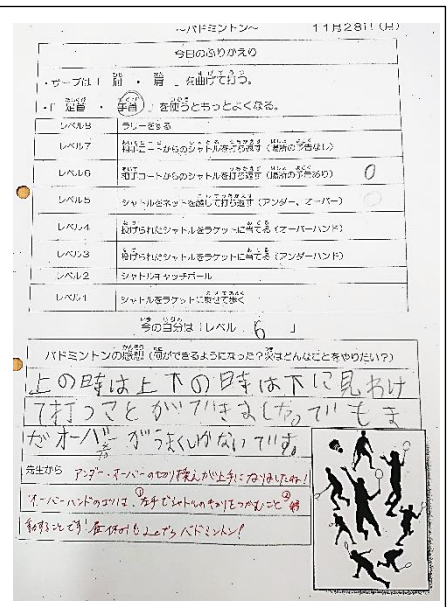 ～バドミントン～ 11月28日(月)
今日のふりかえり
・サーブは「 肘 ・ 肩 」を曲げてうつ。
・「 足首 ・ 手首 」を使うともっとよくなる。
レベル8 ラリーをする
レベル7 相手コートからのシャトルを打ち返す（場所の予告なし）
レベル6 相手コートからのシャトルを打ち返す（場所の予告あり） ○
レベル5 シャトルをネットを越して打ち返す（アンダー、オーバー） ○
レベル4 投げられたシャトルをラケットに当てる（オーバーハンド）
レベル3 投げられたシャトルをラケットに当てる（アンダーハンド）
レベル2 シャトルキャッチボール
レベル1 シャトルをラケットに乗せて歩く
今の自分は「レベル 6 」
バドミントンの感想（何ができるようになった？次はどんなことをやりたい？）
上の時は上下の時は下に見わけ
て打つことができました。でもま
だオーバーがうまくいかないです。
先生から アンダー・オーバーの切り換えが上手になりましたね！
オーバーハンドのコツは、①左手でシャトルの
することです！昼休みも Let's バドミントン！